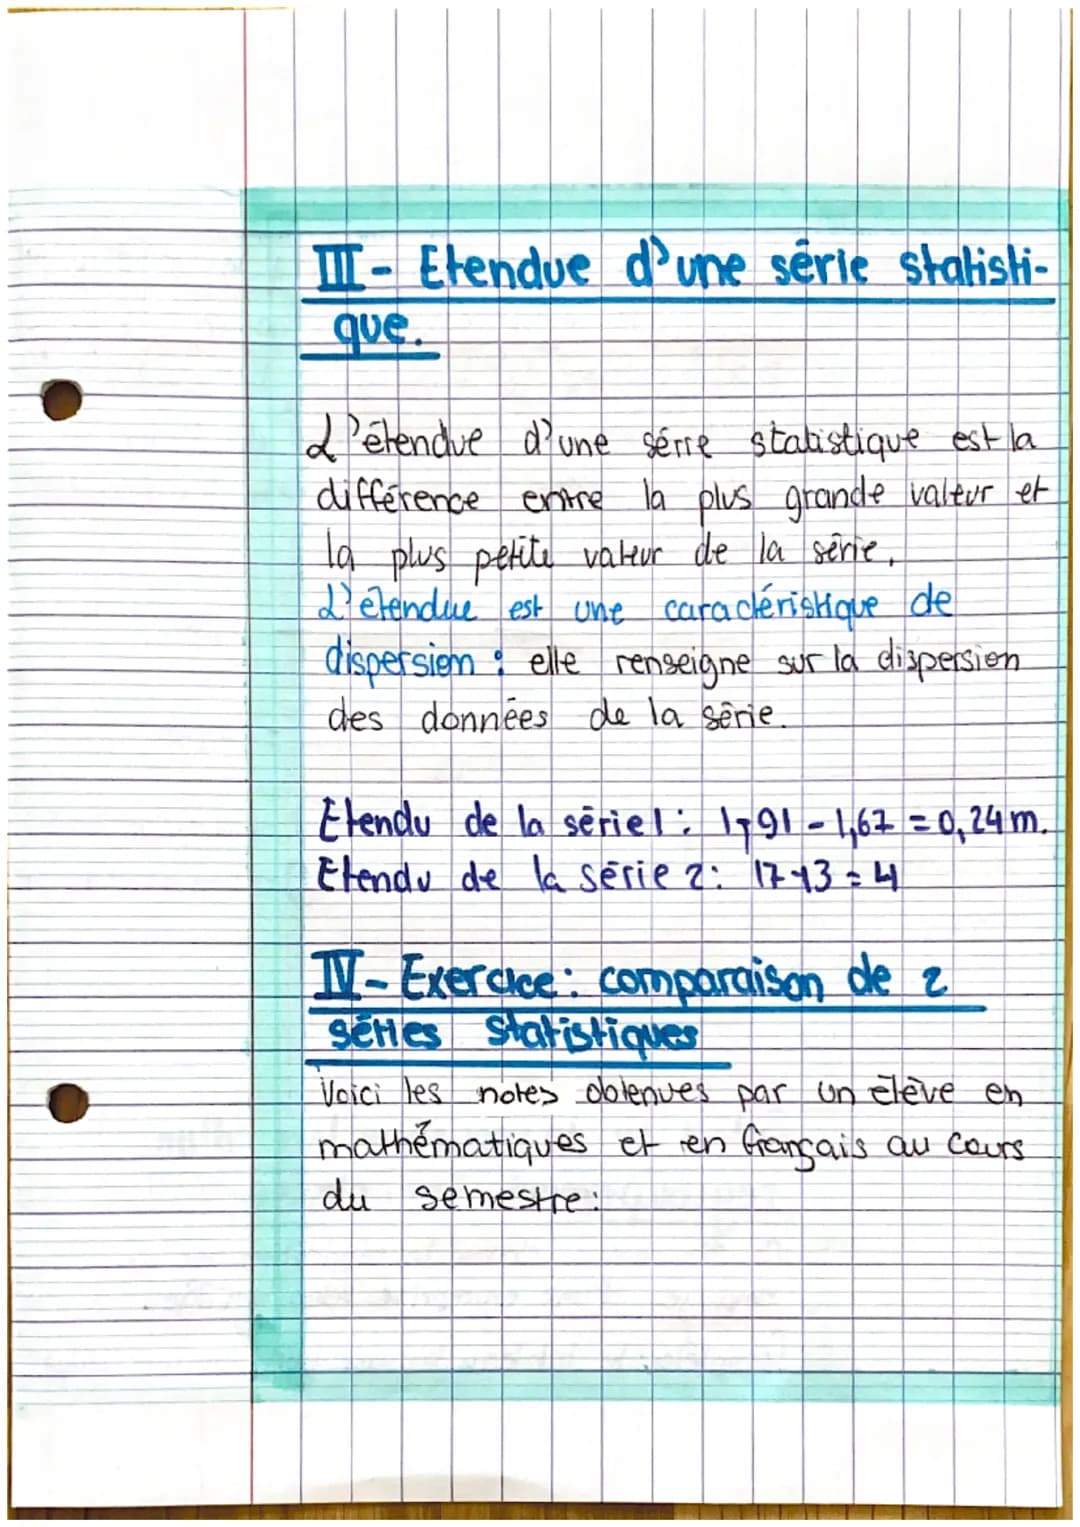 III - Etendue d'une série statisti-
que.
L'étendue d'une série statistique est la
différence entre la plus grande valeur et
la plus petite valeur de la série.
L'étendue est une caractéristique de
dispersion : elle renseigne sur la dispersion
des données de la série.
Etendu de la série 1 : 1,91 - 1,67 = 0,24 m.
Etendu de la série 2 : 17-13 = 4
IV - Exercice : comparaison de 2
séries statistiques
Voici les notes obtenues par un élève en
mathématiques et en français au cours
du semestre :